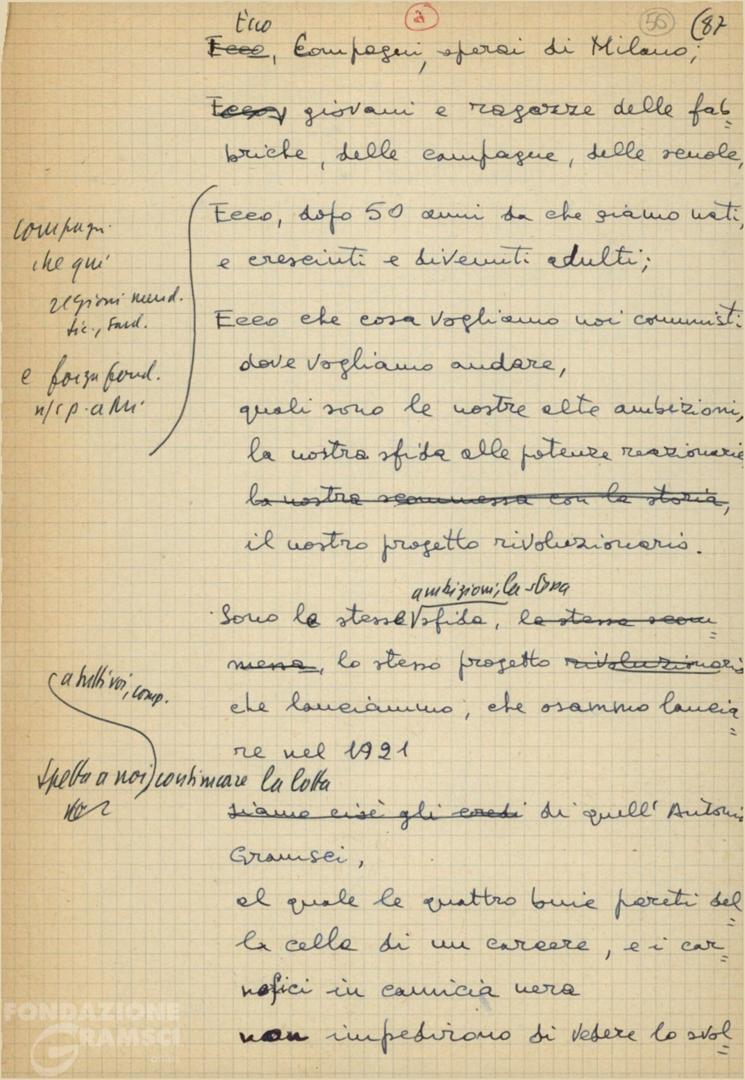 a
56
(87
Ecco
Ecco, Compagni, operai di Milano;
Ecco, giovani e ragazze delle fab=
briche, delle campagne, delle scuole,
Ecco, dopo 50 anni da che siamo nati,
e cresciuti e divenuti adulti;
compagni
che qui
regioni merid.
sic., sard.
e forza fond.
n/s p. a Mi
Ecco che cosa vogliamo noi comunisti
dove vogliamo andare,
quali sono le nostre alte ambizioni,
la nostra sfida alle potenze reazionarie
la nostra scommessa con la storia,
il nostro progetto rivoluzionario.
ambizioni, la stessa
Sono le stesse sfida, la stessa scom=
messa, lo stesso progetto rivoluzionario
che lanciammo, che osammo lancia=
re nel 1921
a tutti voi, comp.
Spetta a noi continuare la lotta
siamo cioè gli eredi di quell' Antonio
Gramsci,
al quale le quattro buie pareti del=
la cella di un carcere, e i car=
nefici in camicia nera
non impedirono di vedere lo svol=
FONDAZIONE
GRAMSCI